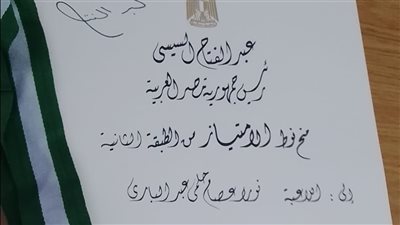 عبد الفتاح السيسى
رئيس جمهورية مصر العربية
منح نوط الامتياز من الطبقة الثانية
إلى : اللاعبة نورا عصام حلمى عبد البارى